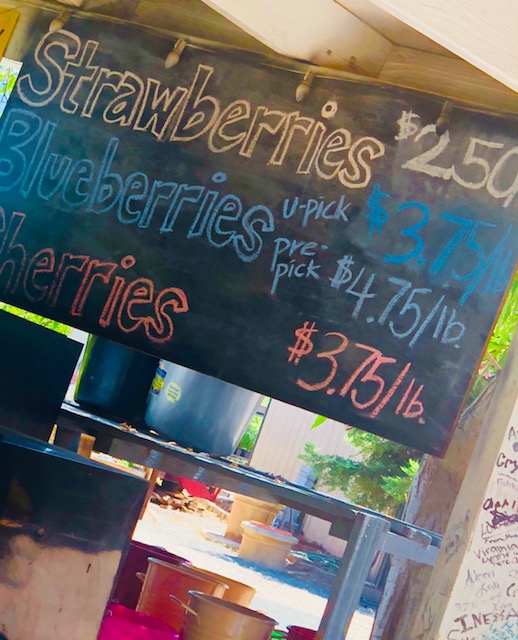 Strawberries $2.50
Blueberries u-pick $3.75/lb
pre-pick $4.75/lb.
Cherries $3.75/lb.
INESSA